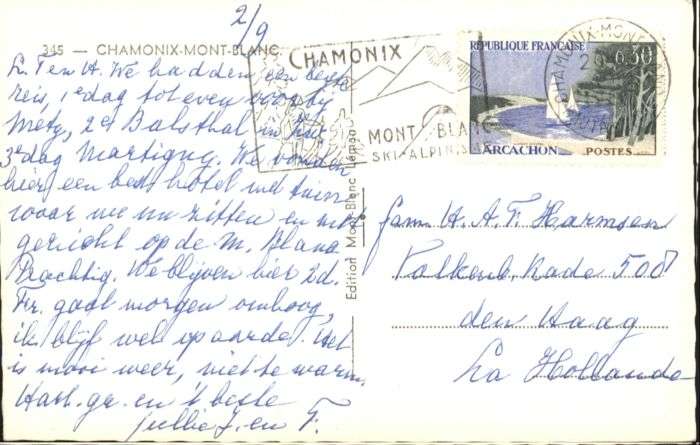 2/9
345 — CHAMONIX-MONT-BLANC
L. T en H. We hadden een beste
reis, 1e dag tot even voorbij
Metz, 2e Balsthal in
3e dag Martigny. We vonden
hier een best hotel met tuin
waar we nu zitten en
gezicht op de M. Blanc
Prachtig. We blijven hier 2d.
Fr. gaat morgen omhoog,
ik blijf wel op aarde. Het
is mooi weer, niet te warm.
Hart. gr. en 't beste
jullie J. en F.
Edition Mont-Blanc
CHAMONIX
MONT-BLANC
SKI-ALPIN
RÉPUBLIQUE FRANÇAISE
0,30
ARCACHON
POSTES
CHAMONIX-MONT
fam. H. A. F. Harmsen
Valkenb. Kade 508
den Haag
La Hollande